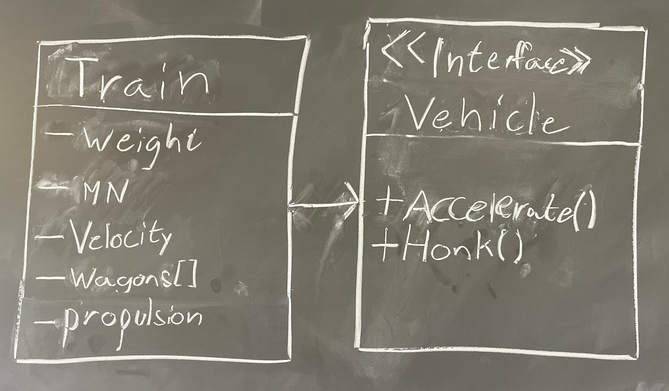 Train
- Weight
- MN
- Velocity
- Wagons[]
- propulsion
<<Interface>>
Vehicle
+Accelerate()
+Honk()